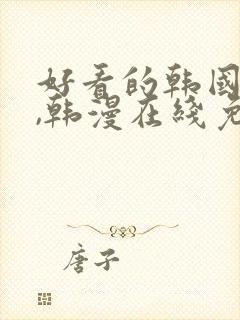 好看的韩国
,韩漫在线免
唐子